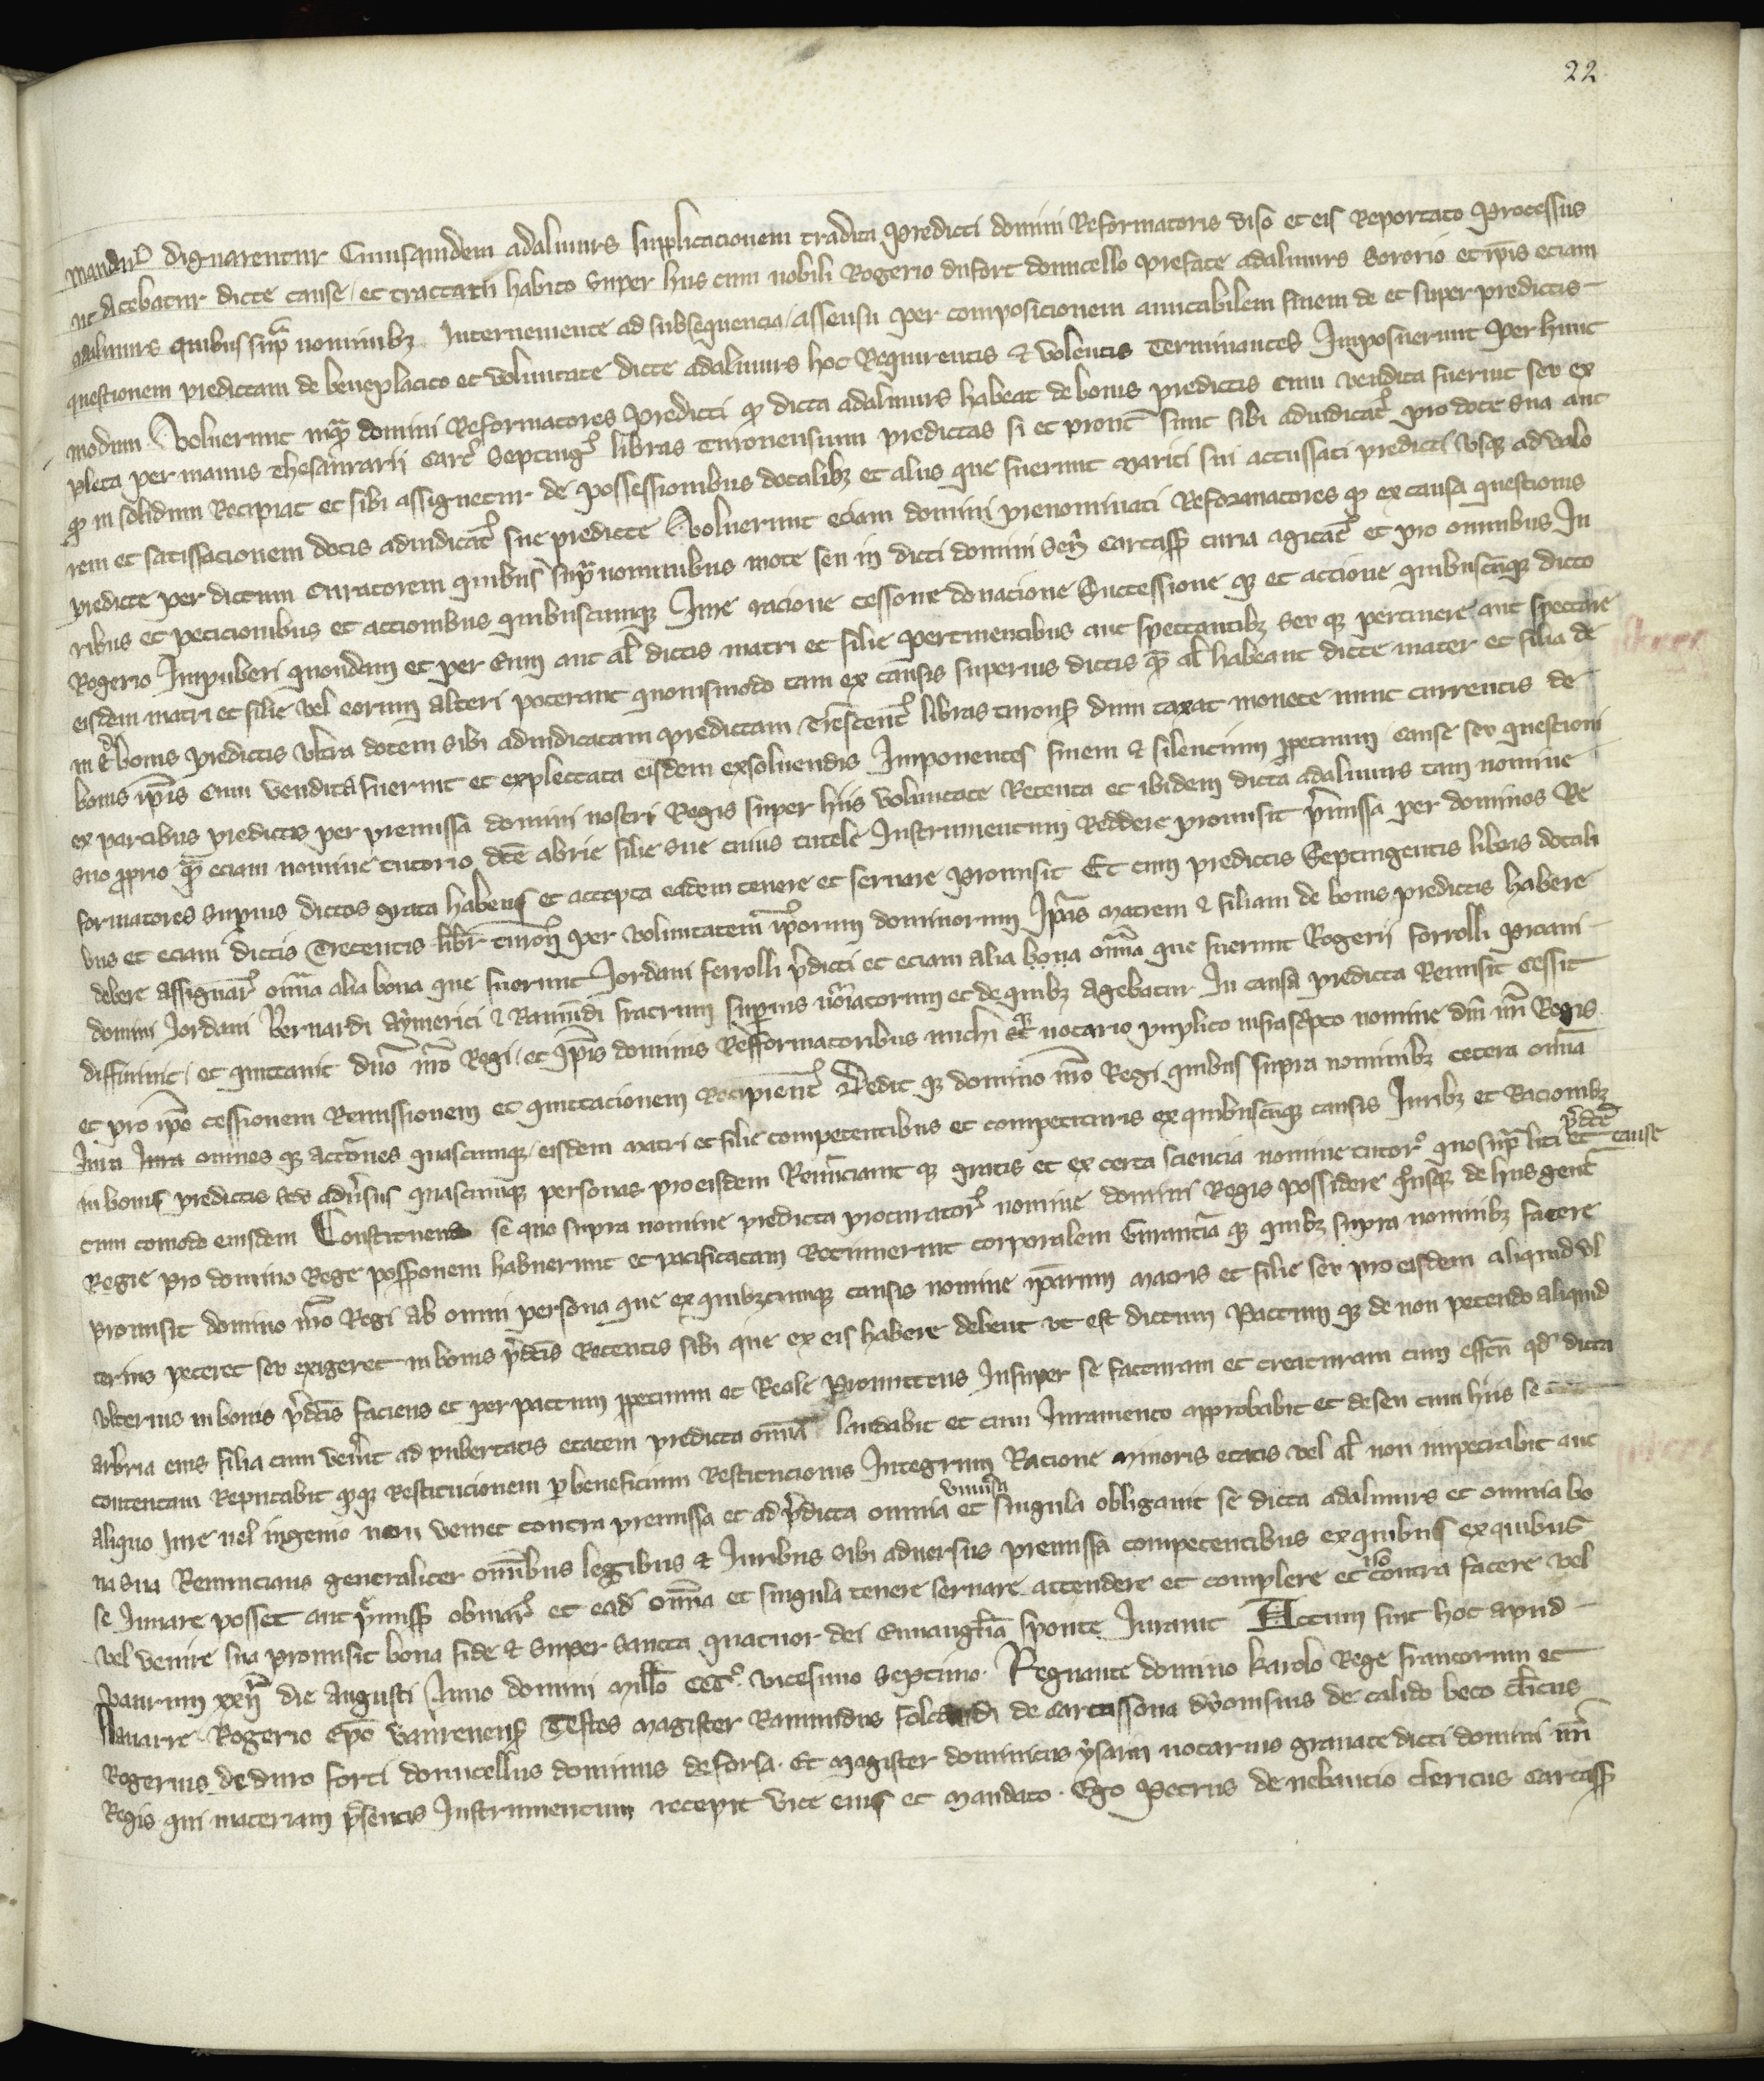 22
dignarentur Cuiusquidem adalmurs supplicacionem tradita predicti domini Reformatoris viso et eis Reportato processus
ut dicebatur dicte cause et tractatu habito super hiis cum nobili Rogerio dufort domicello prefate adalmurs sororio et ipsis eciam
adalmurs quibus supra nominibus Interueniente ad subsequencia assensu per composicionem amicabilem finem de et super predictis
questionem predictam de beneplacito et voluntate dicte adalmurs hoc Requirentis et volentis Terminantes Imposuerunt per hunc
modum Voluerunt inquam domini Reformatores predicti quod dicta adalmurs habeat de bonis predictis cum vendita fuerint seu ex
pleta per manus thesaurarii Carc septing libras turonensium predictas si et prout sunt sibi adiudicat pro dote sua aut
quod in solidum Recipiat et sibi assignetur de possessionibus dotalibus et aliis que fuerunt mariti sui accussati predicti usque ad valo
rem et satisfacionem dotis adiudicat sue predicte Voluerunt eciam domini prenominati Reformatores quod ex causa questionis
predicte per dictum Curatorem quibus supra nominibus mote seu in dicti domini sen carcass curia agitat et pro omnibus Iu
ribus et peticionibus et accionibus quibuscumque Iure racione cessione donacione Successione que et accione quibuscumque dicto
Rogerio Impuberi quondam et per eum aut al dictis matri et filie pertinentibus aut spectantibus seu que pertinere aut spectare
eisdem matri et filie vel eorum alteri poterant quouismodo tam ex causis superius dictis quam al habeant dicte mater et filia de
in de bonis predictis ultra dotem sibi adiudicatam predictam Trescent libras turon dum taxat monete nunc currentis de
bonis ipsis cum vendita fuerint et explectata eisdem exsoluendis Imponentes finem et silencium perpetuum cause seu questioni
ex partibus predictis per premissa domini nostri Regis super hiis voluntate Retenta et ibidem dicta adalmurs tam nomine
suo proprio quam eciam nomine tutorio dicte abrie filie sue cuius tutele Instrumentum Reddere promisit premissa per dominos Re
formatores superius dictos grata habens et accepta eadem tenere et seruare promisit Et cum predictis Septingentis libris dotali
bus et eciam dictis Trecentis libr turon per voluntatem ipsorum dominorum Ipsas matrem et filiam de bonis predictis habere
debere assignar omnia alia bona que fuerunt Iordani ferrolli predicti et eciam alia bona omnia que fuerunt Rogerii forrolli prciani
domini Iordani Bernardi aymerici et Raimundi fratrum superius nominatorum et de quibus agebatur In causa predicta Remisit Cessit
diffiniuit et quittauit domino nostro Regi et ipsis dominis Refformatoribus michi que notario puplico infrascripto nomine domini nostri Regis
et pro ipso cessionem Remissionem et quittacionem Recipient Dedit que domino nostro Regi quibus supra nominibus cetera omnia
Iura Iura omnes que acciones quascumque eisdem matri et filie competentibus et competituris ex quibuscumque causis Iuribus et Racionibus
in bonis predictis seu aduersus quascumque personas pro eisdem Renunciauit que gratis et ex certa sciencia nomine tutor quo supra liti et predicte cause
cum comodo eiusdem Constituens se quo supra nomine predicta procurator nomine domini Regis possidere quousque de hiis gent
Regie pro domino Rege possessionem habuerint et pacificatam Retinuerint corporalem Gurantia que quibus supra nominibus facere
promisit domino nostro Regi ab omni persona que ex quibuscumque causis nomine ipsarum matris et filie seu pro eisdem aliquid ul
terius peteret seu exigeret in bonis predictis Retentis sibi que ex eis habere debent ut est dictum Pactum que de non petendo aliquid
ulterius in bonis predictis faciens et per pactum perpetuum et Reale Promittens Insuper se facturam et creaturam cum effectu quod dicta
arbria eius filia cum venerit ad pubertatis etatem predicta omnia laudabit et cum Iuramento approbabit et de seu cum hiis se
contentam Reputabit quodque Restitucionem per beneficium Restitucionis Integrum Racione minoris etatis vel al non impetrabit aut
aliquo Iure uel ingenio non veniet contra premissa et ad predicta omnia et universa singula obligauit se dicta adalmurs et omnia bo
na sua Renuncians generaliter omnibus legibus et Iuribus sibi aduersus premissa competentibus ex quibus ex quibus
se Iuuare posset aut premiss obuiar et ead omnia et singula tenere seruare attendere et complere et non contra facere vel
vel venire sua promisit bona fide et super sancta quatuor dei Euuangelia sponte Iurauit Actum fuit hoc apud
Vaurum die augusti Anno domini mill CCC vicesimo septimo Regnante domino karolo Rege francorum et
Nauarre Rogerio Epo vaurenens Testes magister Raimundus folcaudi de Carcassona dyonisius de calido beco clericus
Rogerius de duro forti domicellus dominus de forsa Et magister dominicus ysarn notarius grauate dicti domini nostri
Regis qui materiam presentis Instrumentum recepit vice eius et mandato Ego Petrus de nebautio clericus carcass